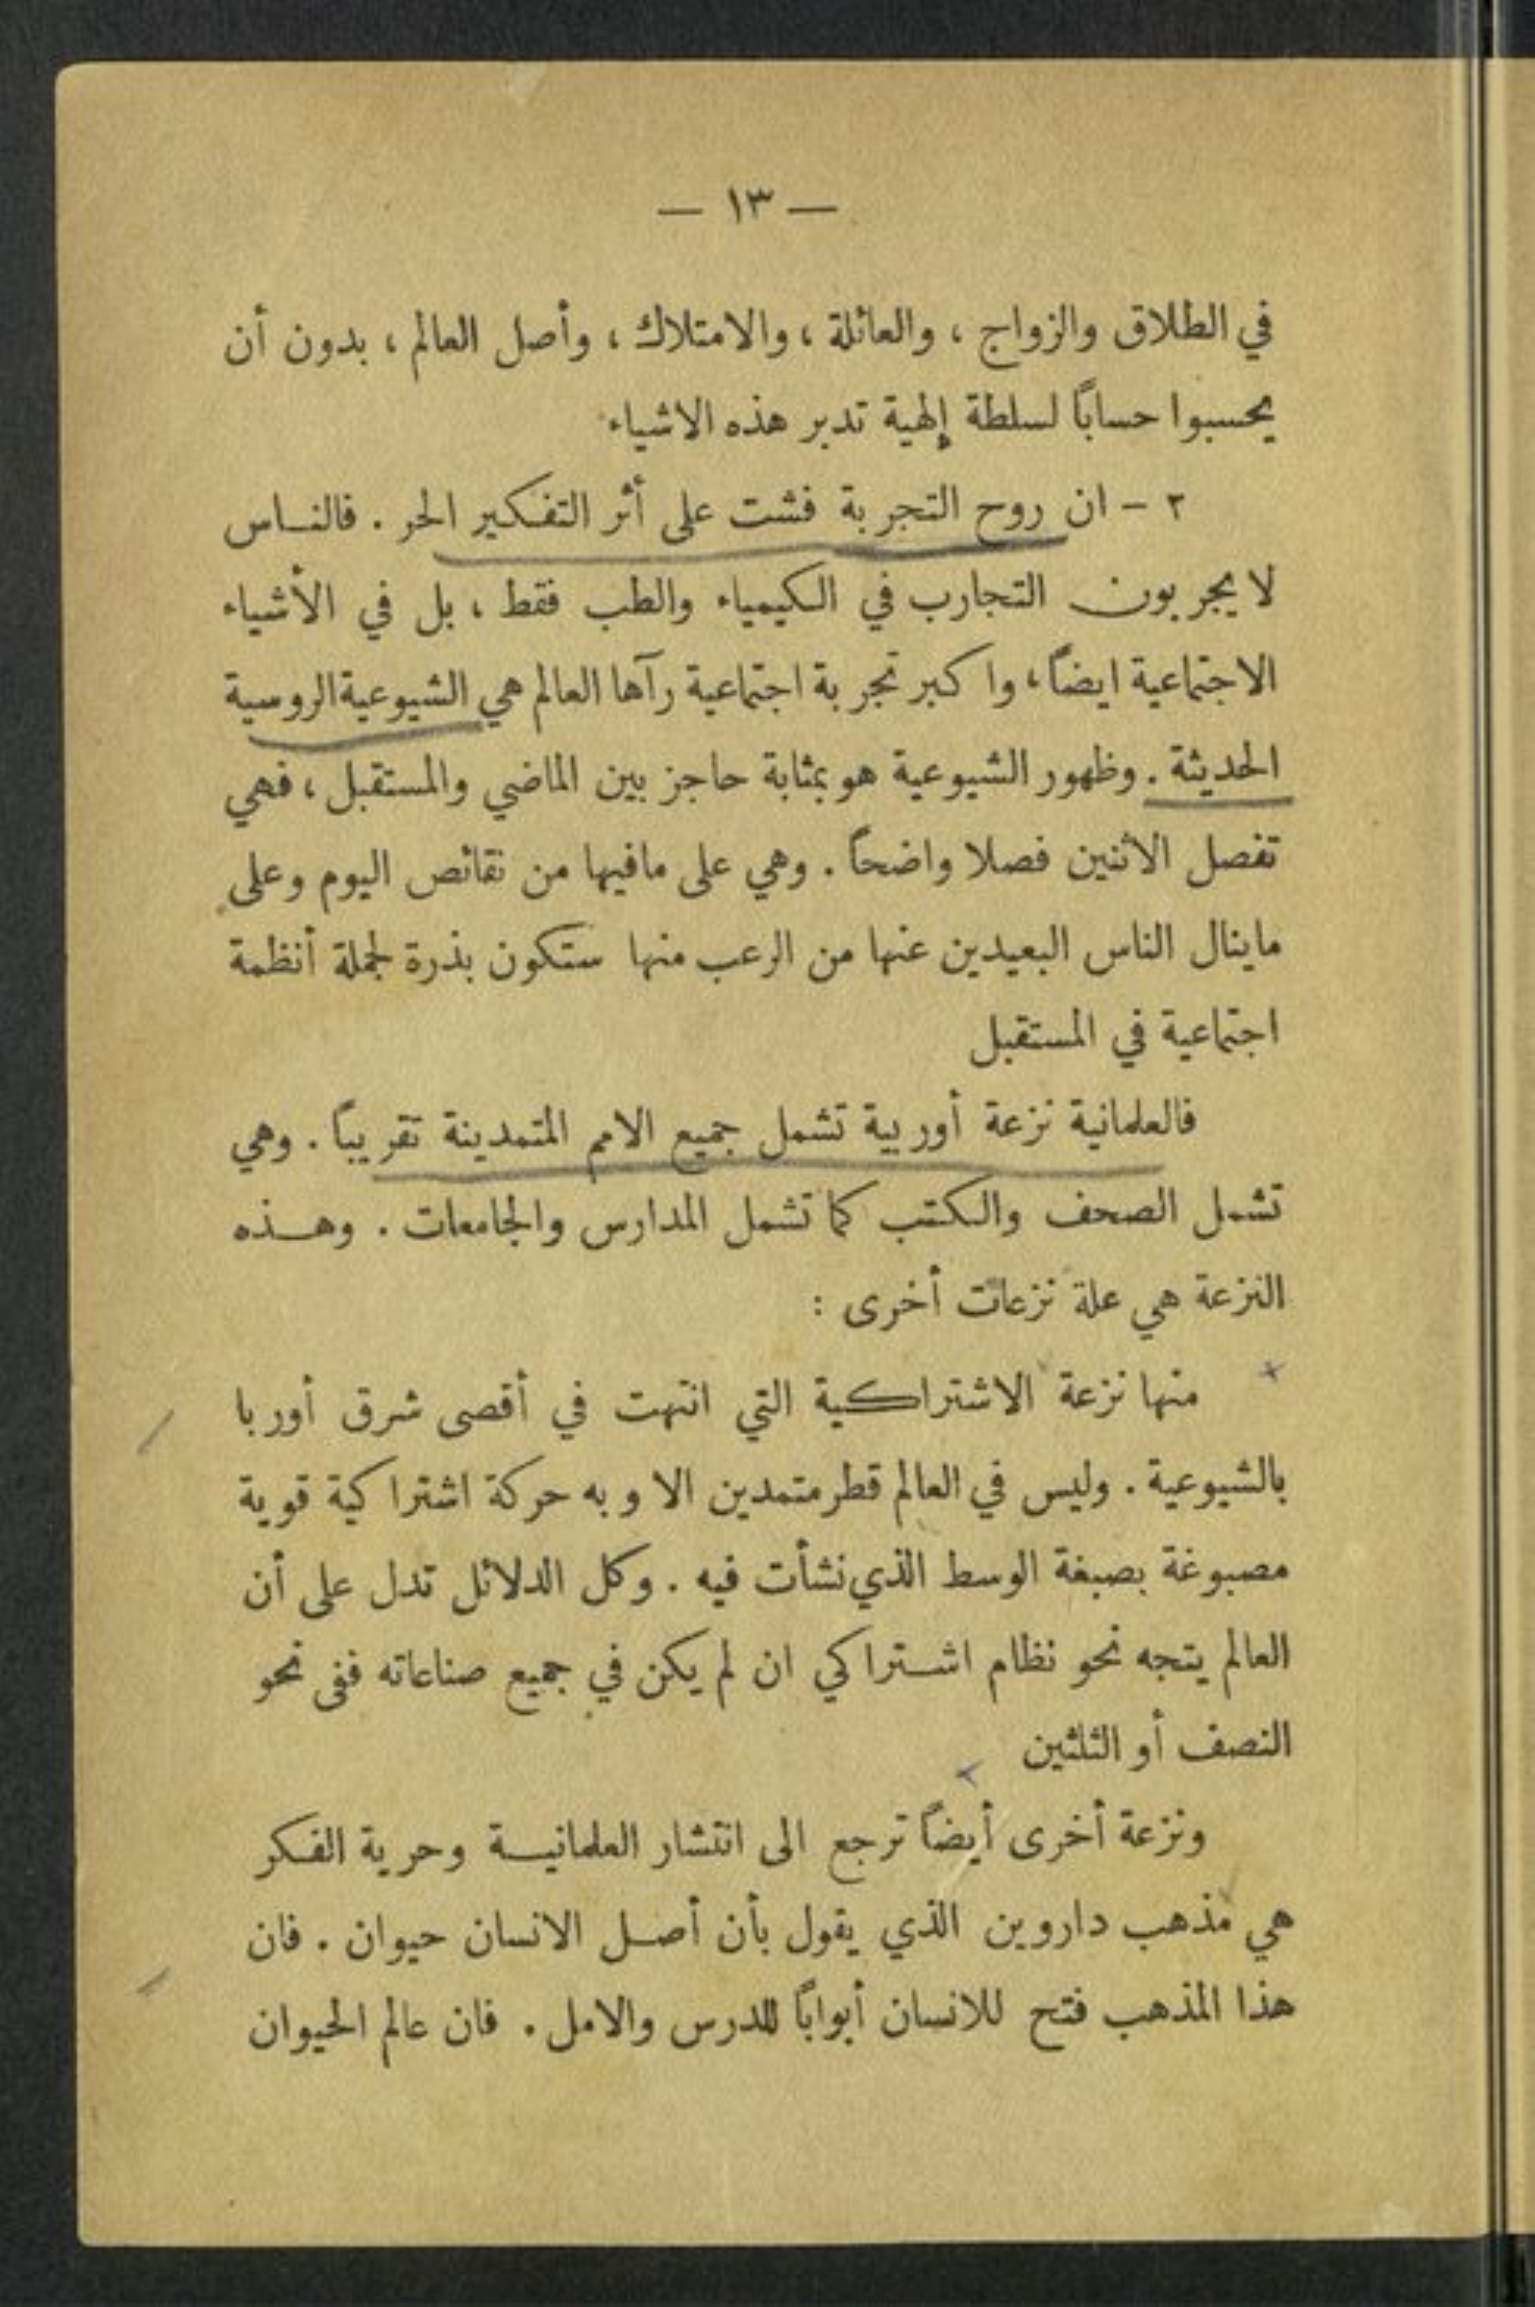 — ١٣ —
في الطلاق والزواج ، والعائلة ، والامتلاك ، وأصل العالم ، بدون أن
يحسبوا حساباً لسلطة إلهية تدبر هذه الاشياء
٢ - ان روح التجربة فشت على أثر التفكير الحر . فالناس
لا يجربون التجارب في الكيمياء والطب فقط ، بل في الأشياء
الاجتماعية ايضاً ، واكبر تجربة اجتماعية رآها العالم هي الشيوعية الروسية
الحديثة . وظهور الشيوعية هو بمثابة حاجز بين الماضي والمستقبل ، فهي
تفصل الاثنين فصلا واضحاً . وهي على مافيها من نقائص اليوم وعلى
ماينال الناس البعيدين عنها من الرعب منها ستكون بذرة لجملة أنظمة
اجتماعية في المستقبل
فالعلمانية نزعة أوربية تشمل جميع الامم المتمدينة تقريباً . وهي
تشمل الصحف والكتب كما تشمل المدارس والجامعات . وهذه
النزعة هي علة نزعات أخرى :
منها نزعة الاشتراكية التي انتهت في أقصى شرق أوربا
بالشيوعية . وليس في العالم قطر متمدين الا وبه حركة اشتراكية قوية
مصبوغة بصبغة الوسط الذي نشأت فيه . وكل الدلائل تدل على أن
العالم يتجه نحو نظام اشتراكي ان لم يكن في جميع صناعاته ففى نحو
النصف أو الثلثين
ونزعة أخرى أيضاً ترجع الى انتشار العلمانية وحرية الفكر
هي مذهب داروين الذي يقول بأن أصل الانسان حيوان . فان
هذا المذهب فتح للانسان أبواباً للدرس والامل . فان عالم الحيوان